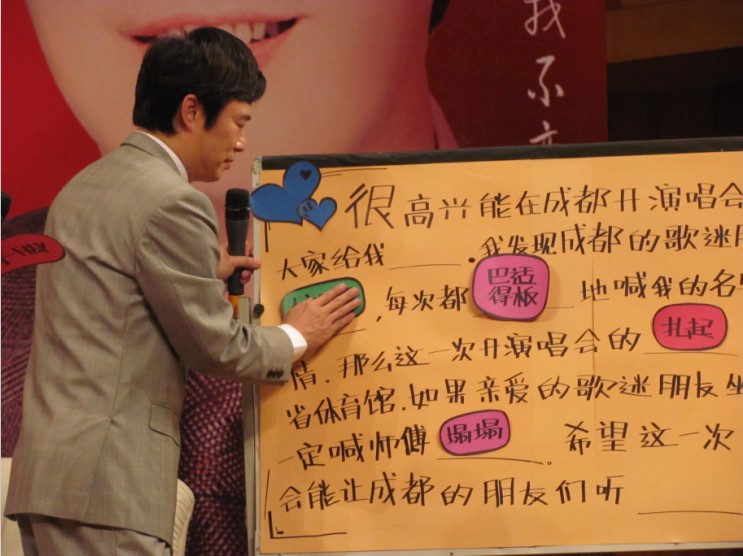 我
不
很高兴能在成都开演唱会
大家给我 ______ . 我发现成都的歌迷朋
______ , 每次都 巴适得板 ______ 地喊我的名字
情 . 那么这一次开演唱会的 扎起
省体育馆 . 如果亲爱的歌迷朋友坐
一定喊师傅 塌塌 ______ 。希望这一次
会能让成都的朋友们听 ______